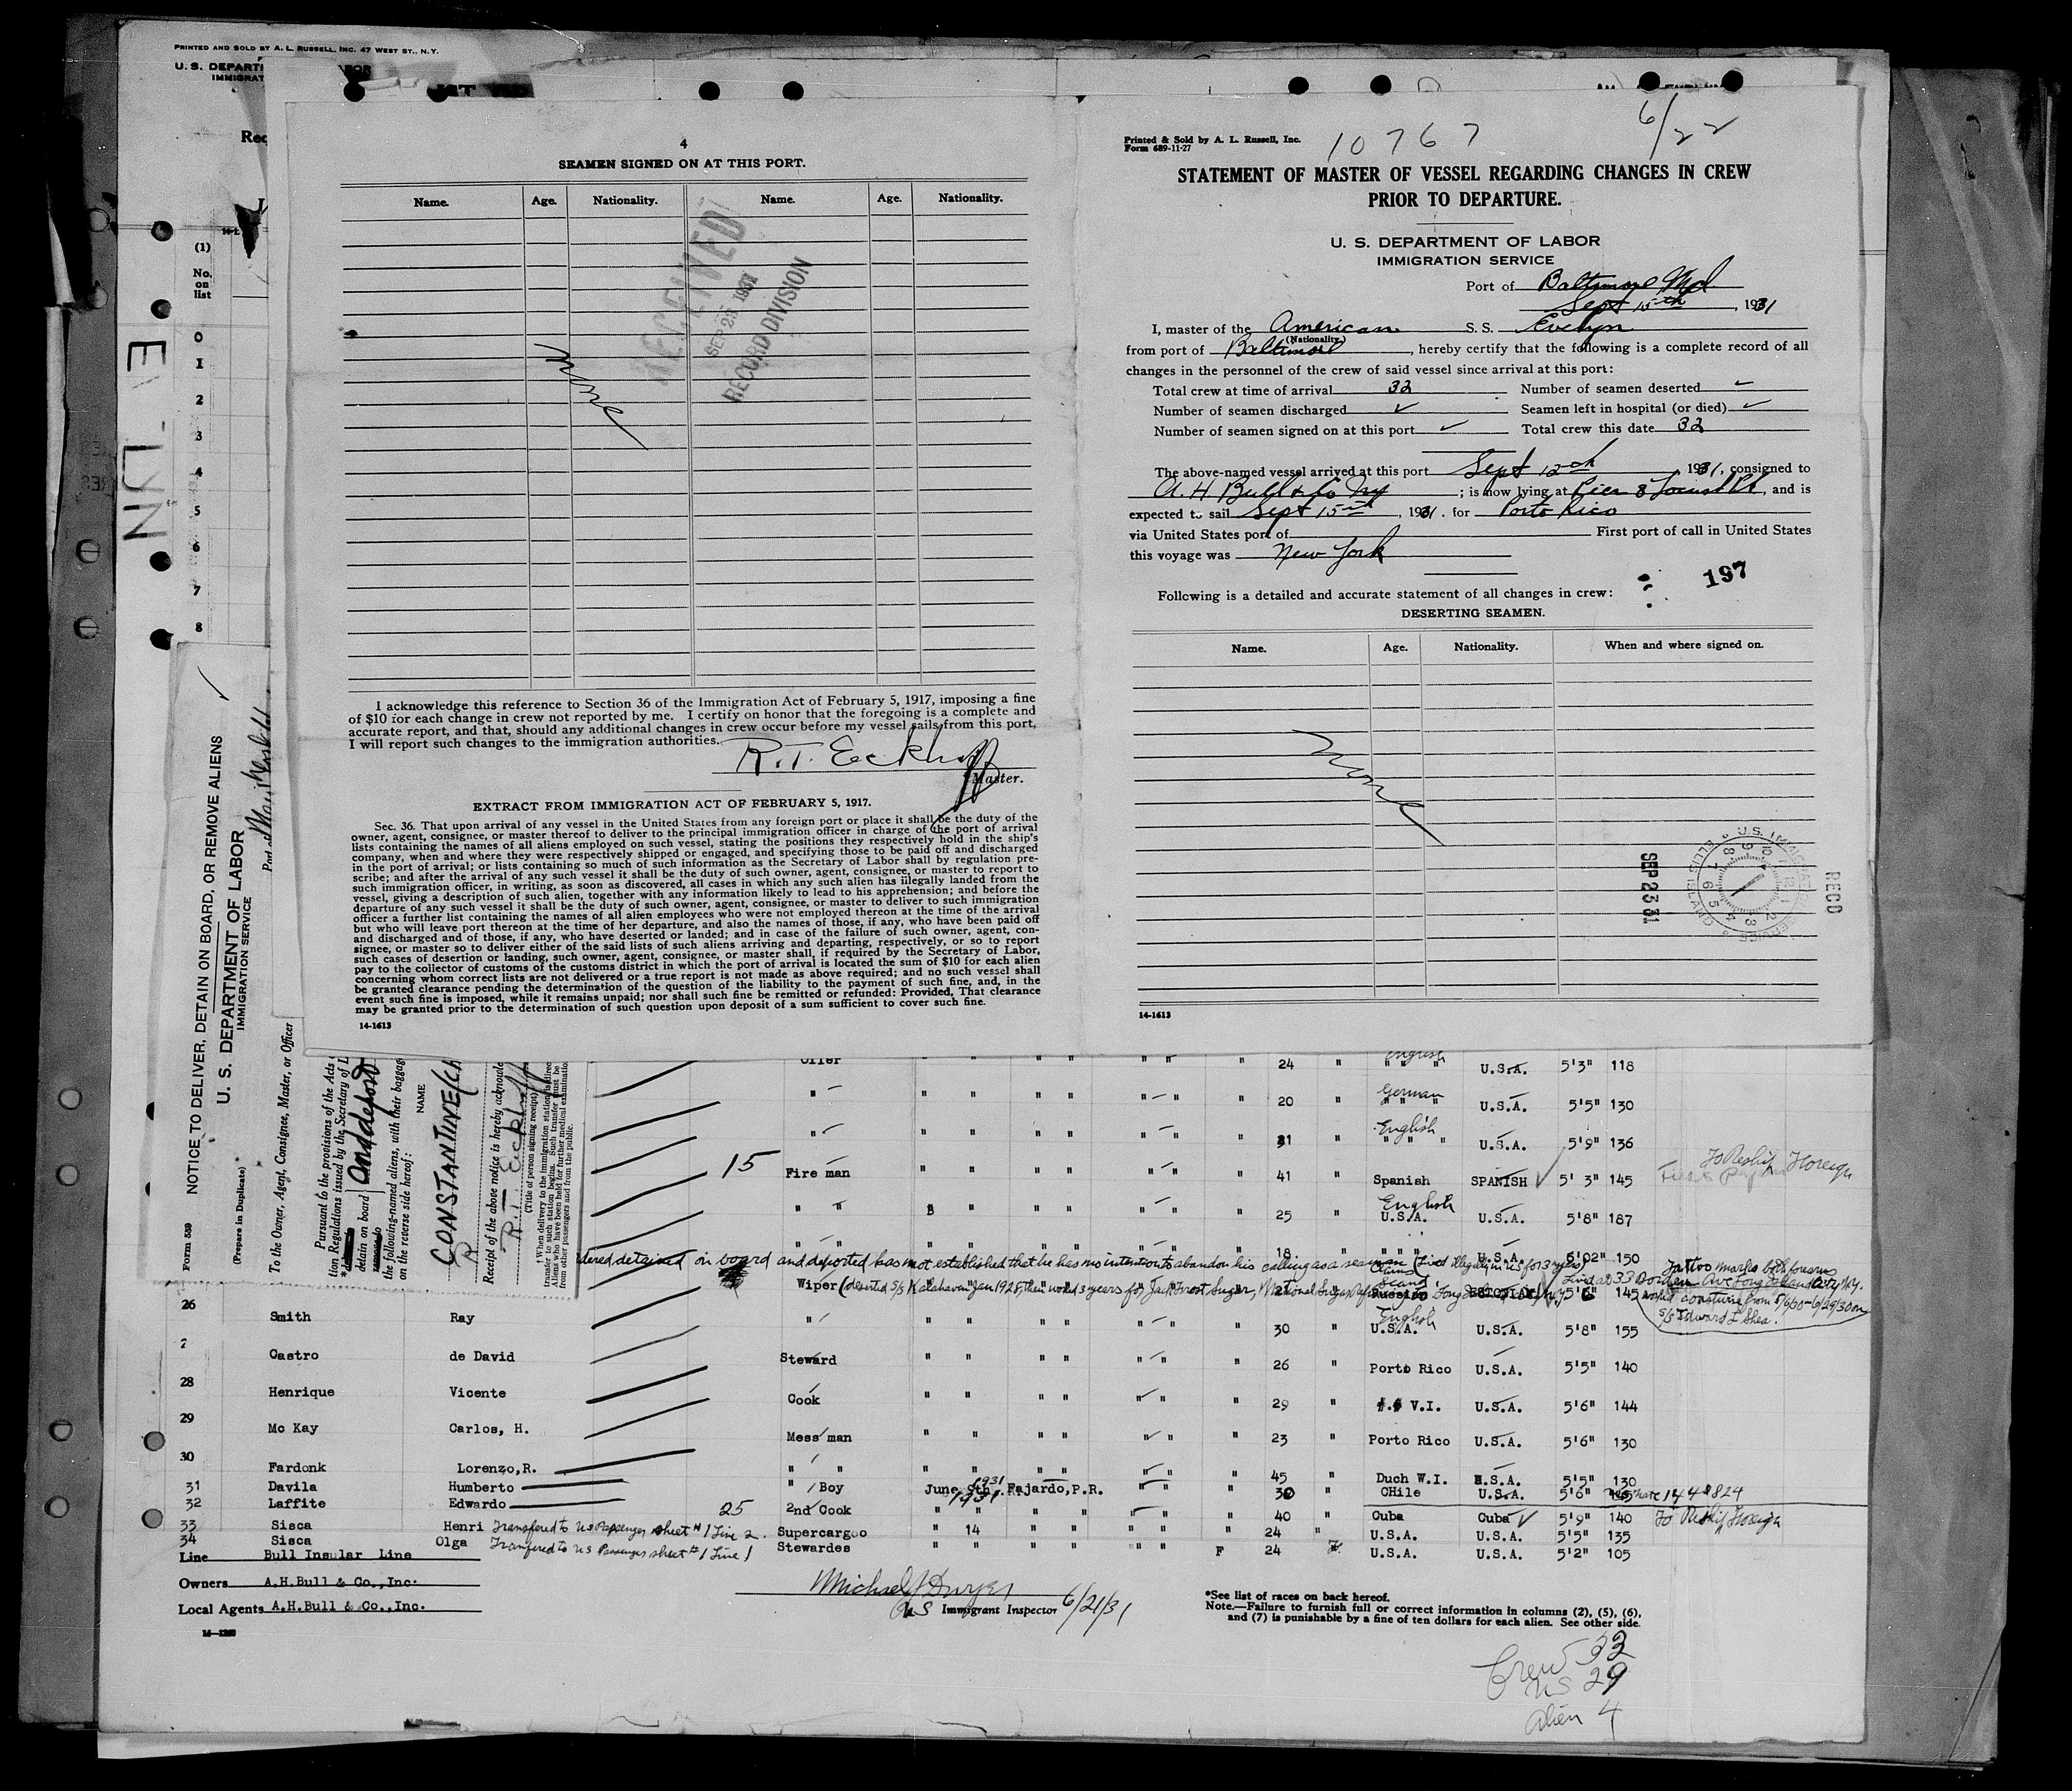 PRINTED AND SOLD BY A. L. RUSSELL, INC. 47 WEST ST., N.Y.
U. S. DEPARTI
IMMIGRAT
Rec
(1)
No.
on
list
0
1
2
3
4
5
6
7
8
E
4
SEAMEN SIGNED ON AT THIS PORT.
Name. Age. Nationality. Name. Age. Nationality.
RECEIVED
SEP 23 1931
RECORD DIVISION
None
I acknowledge this reference to Section 36 of the Immigration Act of February 5, 1917, imposing a fine
of $10 for each change in crew not reported by me. I certify on honor that the foregoing is a complete and
accurate report, and that, should any additional changes in crew occur before my vessel sails from this port,
I will report such changes to the immigration authorities.
R.T. Eckhoff
Master.
EXTRACT FROM IMMIGRATION ACT OF FEBRUARY 5, 1917.
Sec. 36. That upon arrival of any vessel in the United States from any foreign port or place it shall be the duty of the
owner, agent, consignee, or master thereof to deliver to the principal immigration officer in charge of the port of arrival
lists containing the names of all aliens employed on such vessel, stating the positions they respectively hold in the ship's
company, when and where they were respectively shipped or engaged, and specifying those to be paid off and discharged
in the port of arrival; or lists containing so much of such information as the Secretary of Labor shall by regulation pre-
scribe; and after the arrival of any such vessel it shall be the duty of such owner, agent, consignee, or master to report to
such immigration officer, in writing, as soon as discovered, all cases in which any such alien has illegally landed from the
vessel, giving a description of such alien, together with any information likely to lead to his apprehension; and before the
departure of any such vessel it shall be the duty of such owner, agent, consignee, or master to deliver to such immigration
officer a further list containing the names of all alien employees who were not employed thereon at the time of the arrival
but who will leave port thereon at the time of her departure, and also the names of those, if any, who have been paid off
and discharged and of those, if any, who have deserted or landed; and in case of the failure of such owner, agent, con-
signee, or master so to deliver either of the said lists of such aliens arriving and departing, respectively, or so to report
such cases of desertion or landing, such owner, agent, consignee, or master shall, if required by the Secretary of Labor,
pay to the collector of customs of the customs district in which the port of arrival is located the sum of $10 for each alien
concerning whom correct lists are not delivered or a true report is not made as above required; and no such vessel shall
be granted clearance pending the determination of the question of the liability to the payment of such fine, and, in the
event such fine is imposed, while it remains unpaid; nor shall such fine be remitted or refunded: Provided, That clearance
may be granted prior to the determination of such question upon deposit of a sum sufficient to cover such fine.
14-1613
Printed & Sold by A. L. Russell, Inc.
Form 689-11-27
10767
6/22
STATEMENT OF MASTER OF VESSEL REGARDING CHANGES IN CREW
PRIOR TO DEPARTURE.
U. S. DEPARTMENT OF LABOR
IMMIGRATION SERVICE
Port of Baltimore Md
Sept 15th, 1931
I, master of the American S. S. Evelyn
(Nationality)
from port of Baltimore, hereby certify that the following is a complete record of all
changes in the personnel of the crew of said vessel since arrival at this port:
Total crew at time of arrival 32 Number of seamen deserted
Number of seamen discharged Seamen left in hospital (or died)
Number of seamen signed on at this port Total crew this date 32
The above-named vessel arrived at this port Sept 12th, 1931, consigned to
A. H Bull & Co NY; is now lying at Pier 8 Locust Pt, and is
expected to sail Sept 15th, 1931. for Porto Rico
via United States port of First port of call in United States
this voyage was New York
197
Following is a detailed and accurate statement of all changes in crew:
DESERTING SEAMEN.
Name. Age. Nationality. When and where signed on.
None
RECD
SEP 23 31
U.S. IMMIGRATION SERVICE ELLIS ISLAND
14-1613
Form 539
NOTICE TO DELIVER, DETAIN ON BOARD, OR REMOVE ALIENS
(Prepare in Duplicate)
U. S. DEPARTMENT OF LABOR
IMMIGRATION SERVICE
To the Owner, Agent, Consignee, Master, or Officer
Pursuant to the provisions of the Acts
tion Regulations issued by the Secretary of L
detain on board and deport
the following-named aliens, with their baggag
on the reverse side hereof:
NAME
CONSTANTINE
Receipt of the above notice is hereby acknowle
R.T. Eckhoff
(Title of person signing receipt)
Oiler " " " " " " 24 " English U.S.A. 5'3" 118
" " " " " " " 20 " German U.S.A. 5'5" 130
" " " " " " " 31 " English U.S.A. 5'9" 136
15 Fire man " " " " " " 41 " Spanish SPANISH 5' 3" 145 To Reship Foreign
" " B " " " " " 25 " English U.S.A. U.S.A. 5'8" 187
" " 18 " " " " U.S.A. 6'02" 150
dered detained on board and deported has not established that he has no intention to abandon his calling as a seaman (Lived illegally in US for 3 years)
Wiper (deserted S/S Kalahaven Jan 1928, then worked 3 years for Jack Frost Sugar, National Sugar Refining Co Long Russian ESTONIAN 5'6" 145
Tattoo marks both forearms
Lived at 33 Borden Ave Long Island City N.Y.
worked coasturie from 5/6/30-6/29/30 on
S/S Edward L Shea.
26 Smith Ray " " " " " " " 30 " English U.S.A. U.S.A. 5'8" 155
Castro de David Steward " " " " " " 26 " Porto Rico U.S.A. 5'5" 140
28 Henrique Vicente Cook " " " " " " 29 " V.I. U.S.A. 5'6" 144
29 Mc Kay Carlos, H. Mess man " " " " " " 23 " Porto Rico U.S.A. 5'6" 130
30 Fardonk Lorenzo,R. " " " " " " " " 45 " Duch W.I. U.S.A. 5'5" 130
31 Davila Humberto " Boy June 9th 1931. Fajardo,P.R. " " 30 " CHile U.S.A. 5'6" 145
32 Laffite Edwardo 25 2nd Cook " " " " " " 40 " Cuba Cuba 5'9" 140 To Reship Foreign
33 Sisca Henri Transfered to US Passenger sheet #1 Line 2. Supercargoo " 14 " " " " " 24 " U.S.A. U.S.A. 5'5" 135
34 Sisca Olga Transfered to US Passenger sheet #1 Line 1 Stewardes " " " " " " F 24 U.S.A. U.S.A. 5'2" 105
Line Bull Insular Line
Owners A.H.Bull & Co.,Inc.
Local Agents A.H.Bull & Co.,Inc.
Michael J Dwyer
US Immigrant Inspector 6/21/31
*See list of races on back hereof.
Note.—Failure to furnish full or correct information in columns (2), (5), (6),
and (7) is punishable by a fine of ten dollars for each alien. See other side.
Crew 33
US 29
Alien 4